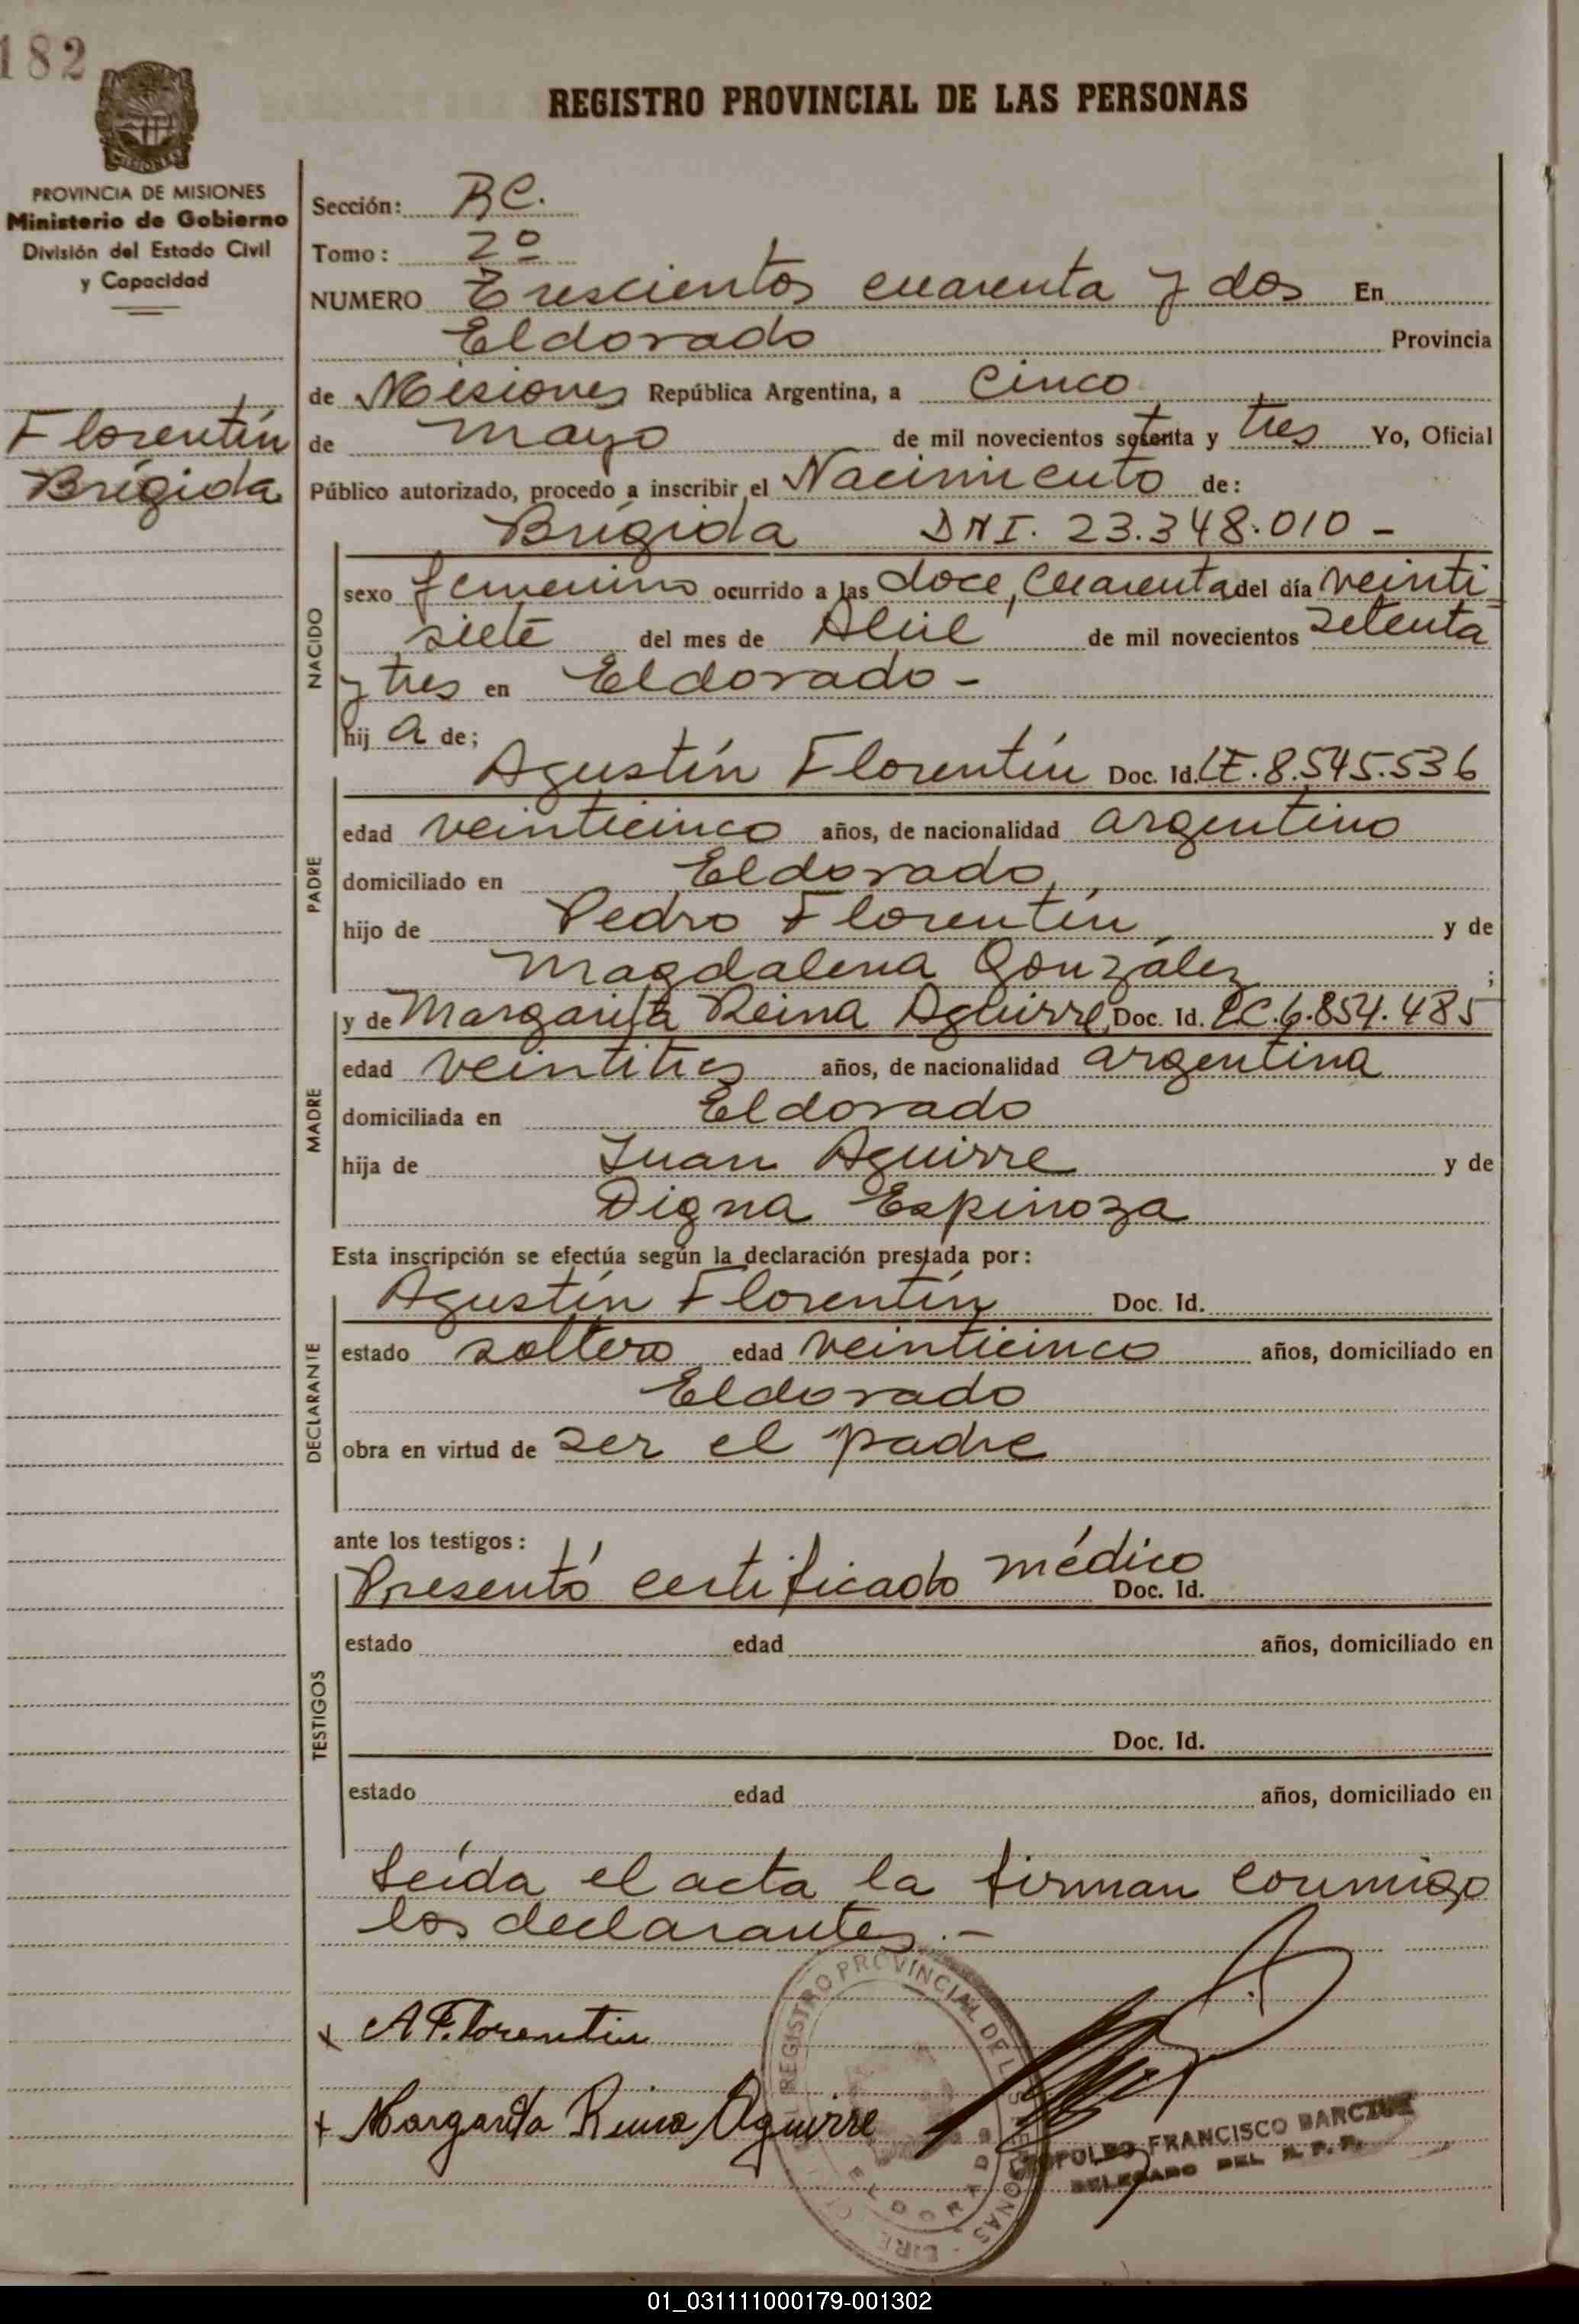 182
REGISTRO PROVINCIAL DE LAS PERSONAS
MISIONES
PROVINCIA DE MISIONES
Ministerio de Gobierno
División del Estado Civil
y Capacidad
Florentín
Brígida
Sección: RC.
Tomo: 2º
NUMERO Trescientos cuarenta y dos En
Eldorado Provincia
de Misiones República Argentina, a cinco
de mayo de mil novecientos setenta y tres Yo, Oficial
Público autorizado, procedo a inscribir el Nacimiento de:
Brígida DNI. 23.348.010 -
NACIDO
sexo femenino ocurrido a las doce, cuarenta del día veinti
siete del mes de Abril de mil novecientos setenta
y tres en Eldorado -
hij a de;
PADRE
Agustín Florentín Doc. Id. LE. 8.545.536
edad veinticinco años, de nacionalidad argentino
domiciliado en Eldorado,
hijo de Pedro Florentín y de
Magdalena González ;
MADRE
y de Margarita Reina Aguirre Doc. Id. LC. 6.854.485
edad veintitres años, de nacionalidad argentina
domiciliada en Eldorado
hija de Juan Aguirre y de
Digna Espinoza
Esta inscripción se efectúa según la declaración prestada por:
DECLARANTE
Agustín Florentín Doc. Id.
estado soltero edad veinticinco años, domiciliado en
Eldorado
obra en virtud de ser el padre
ante los testigos:
TESTIGOS
Presentó certificado médico Doc. Id.
estado edad años, domiciliado en
Doc. Id.
estado edad años, domiciliado en
Leída el acta la firman conmigo
los declarantes.-
x A Florentin
x Margarita Reina Aguirre
REGISTRO PROVINCIAL DE LAS PERSONAS
ELDORADO
LEOPOLDO FRANCISCO
DELEGADO DEL R. P. P.
01_031111000179-001302